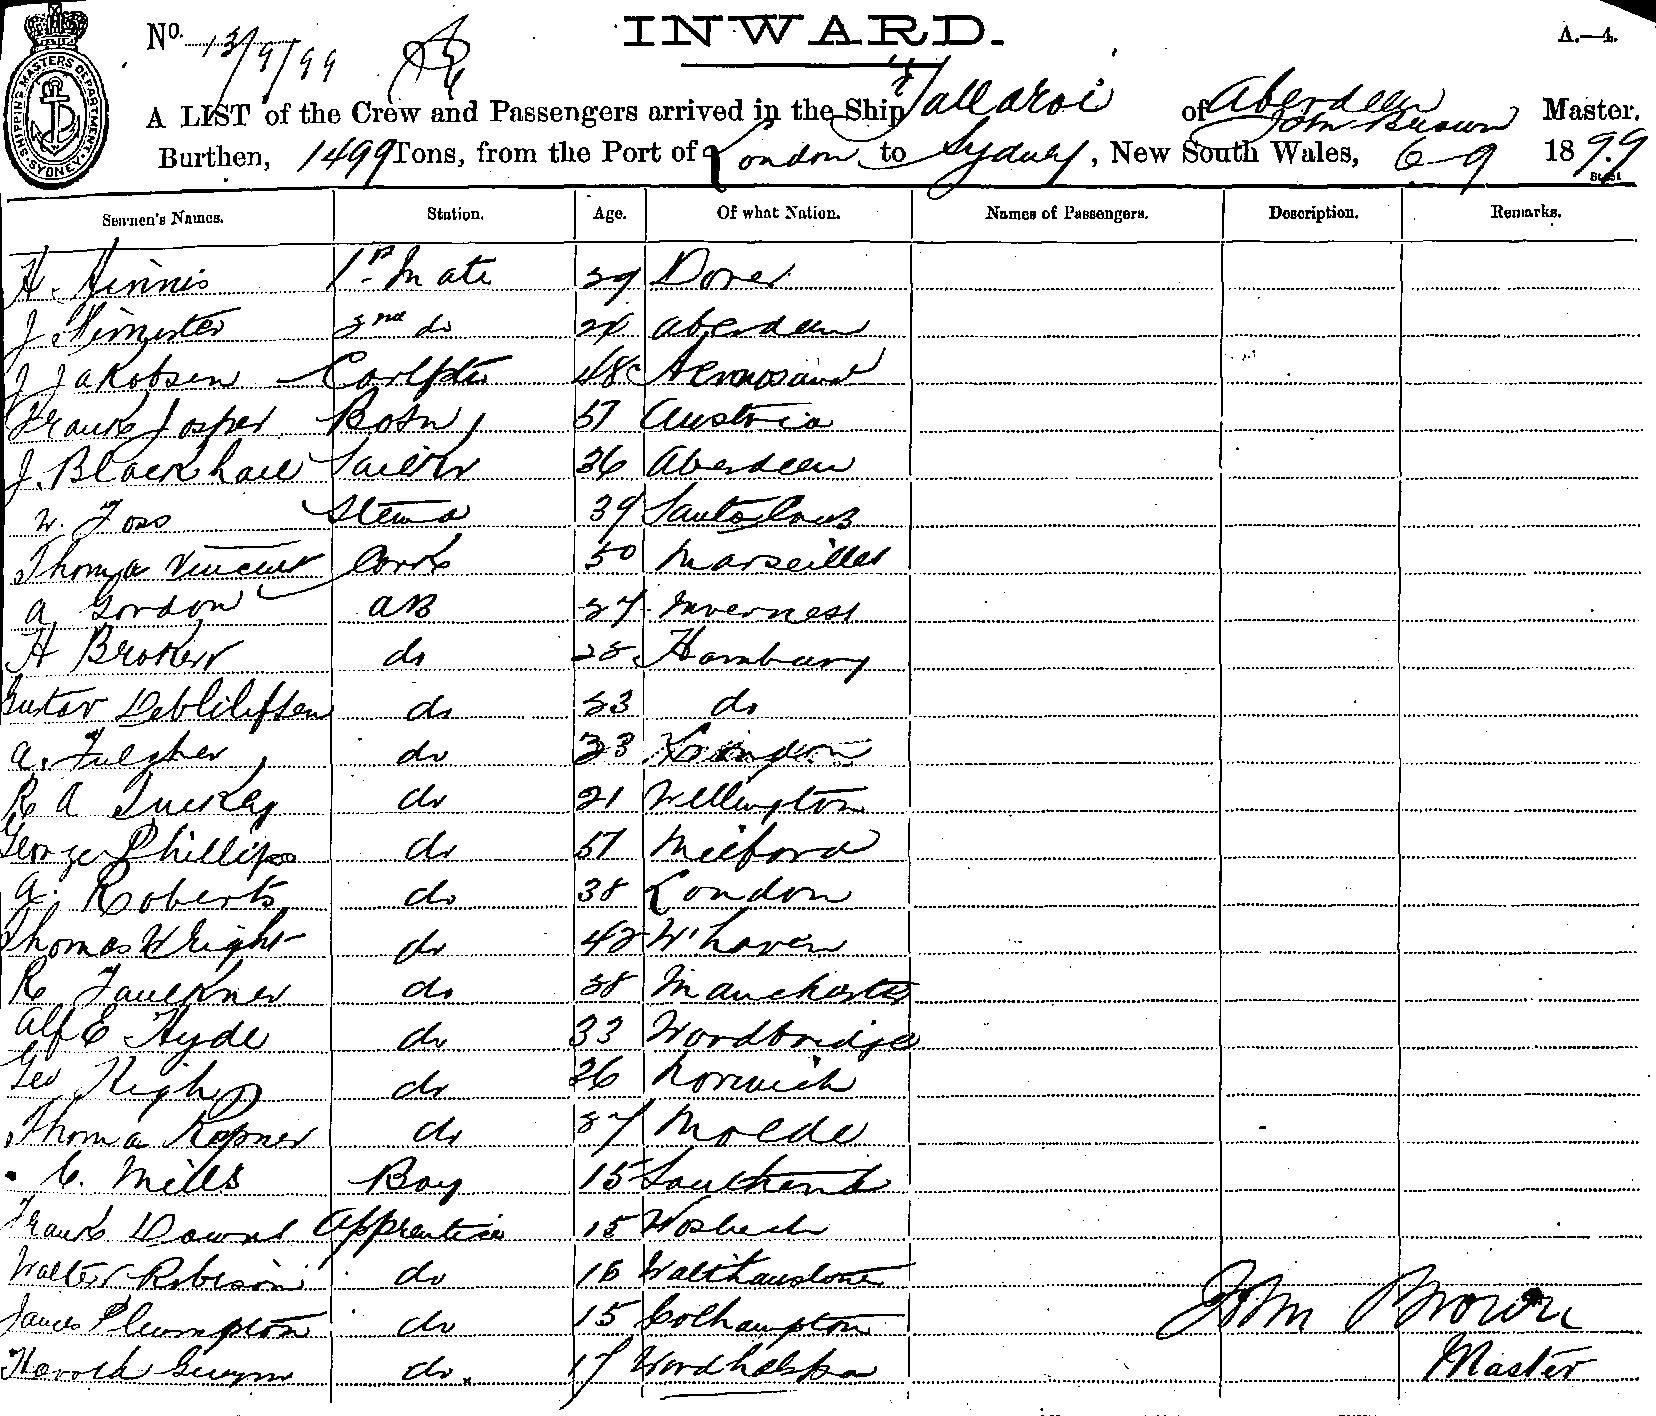 No. 13/9/99
INWARD.
A.—4.
SHIPPING MASTERS DEPARTMENT SYDNEY
A LIST of the Crew and Passengers arrived in the Ship Yallaroi of Aberdeen John Brown Master,
Burthen, 1499 Tons, from the Port of London to Sydney, New South Wales, 6-9 1899
Seamen's Names. Station. Age. Of what Nation. Names of Passengers. Description. Remarks.
H. Hinnis 1st Mate 29 Dover
J. 2nd do Aberdeen
J Jakobsen 48
Frank Josper Bosn 57 Austria
J. Blackhall Sailkr 36 Aberdeen
W. Foss Stewd 39 Santa Cruz
Thomas Vincent Cook 50 Marseilles
A. Gordon AB 27 Inverness
H Broker do 28 Hamburg
Gustav do 23 do
A. Fulcher do 23 London
R A Tuckey do 21 Wellington
George Phillips do 57 Milford
A. Roberts do 38 London
Thomas Wright do 42 W'haven
R Faulkner do 38 Manchester
Alf E Hyde do 33 Woodbridge
Geo do 36 Norwich
Thomas do 27 Molde
C. Mills Boy 15 Southend
Frank Downs Apprentice 15 Wisbech
Walter Robison do 16 Walthamstone
James Plumpton do 15
Harold Gwynn do. 17
John Brown
Master